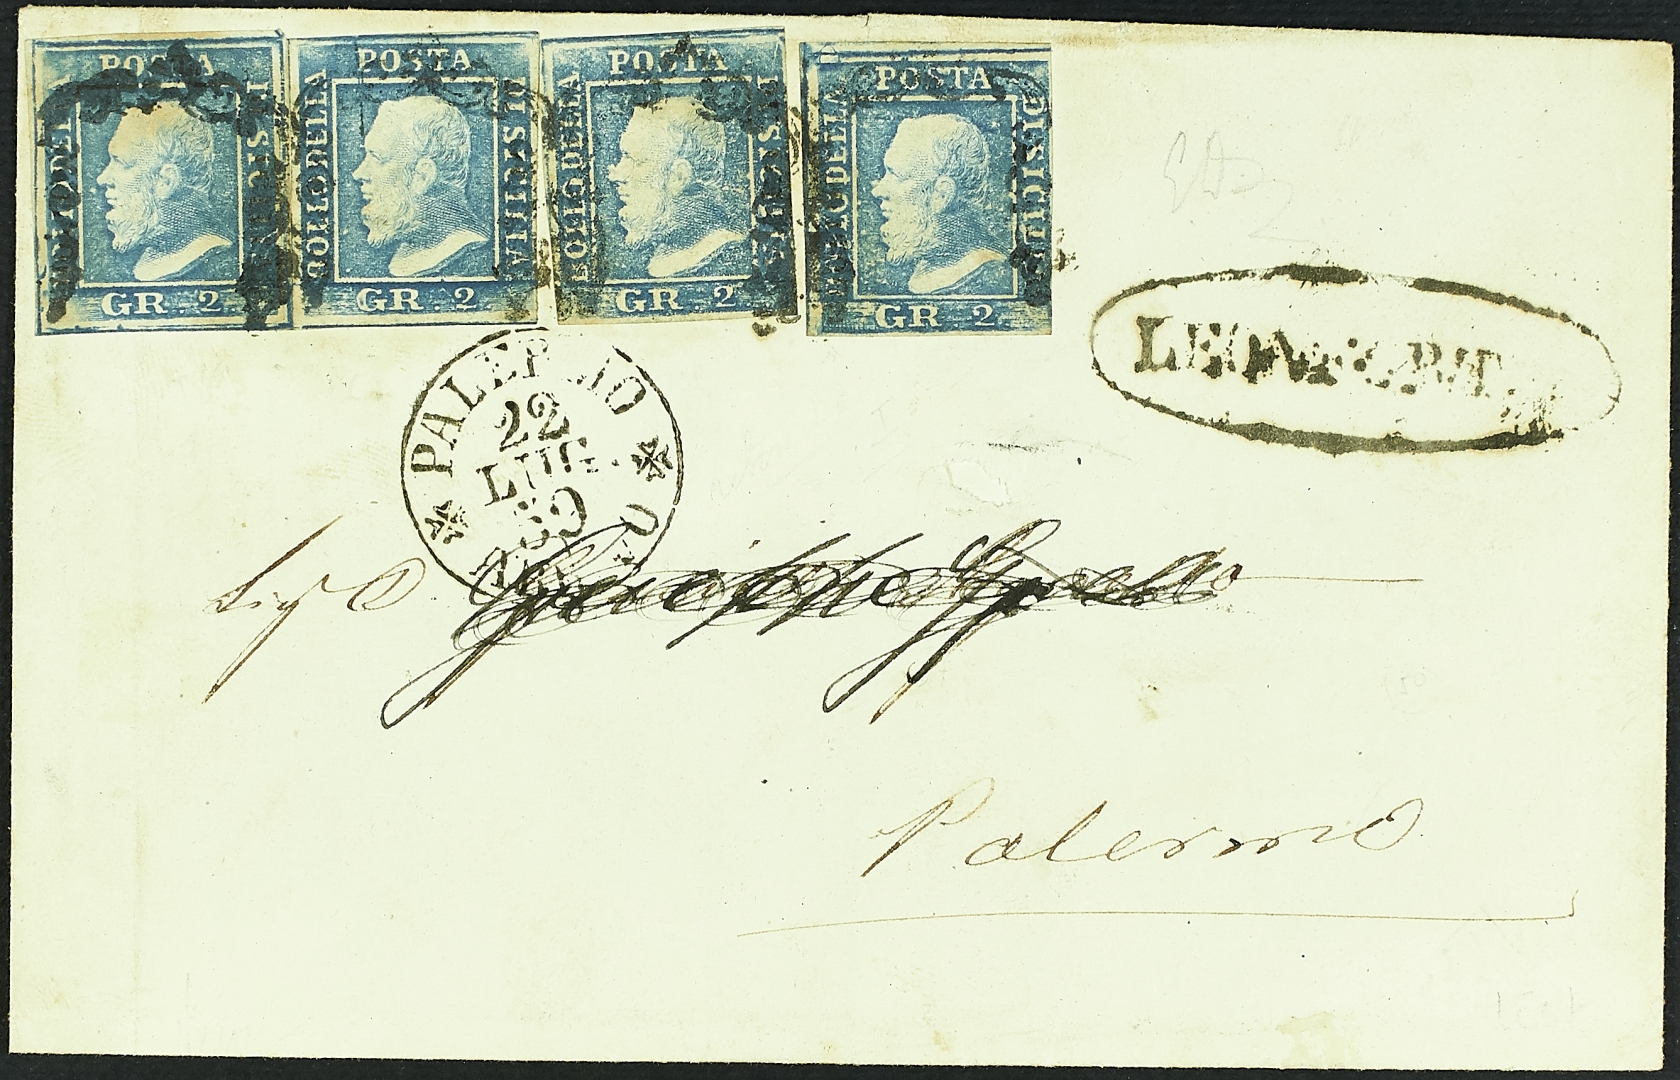 POSTA
BOLLO DELLA
DI SICILIA
GR. 2
POSTA
BOLLO DELLA
DI SICILIA
GR. 2
POSTA
BOLLO DELLA
DI SICILIA
GR. 2
POSTA
BOLLO DELLA
DI SICILIA
GR. 2
LEONFORTE
PALERMO
22
LUG.
59
Palermo